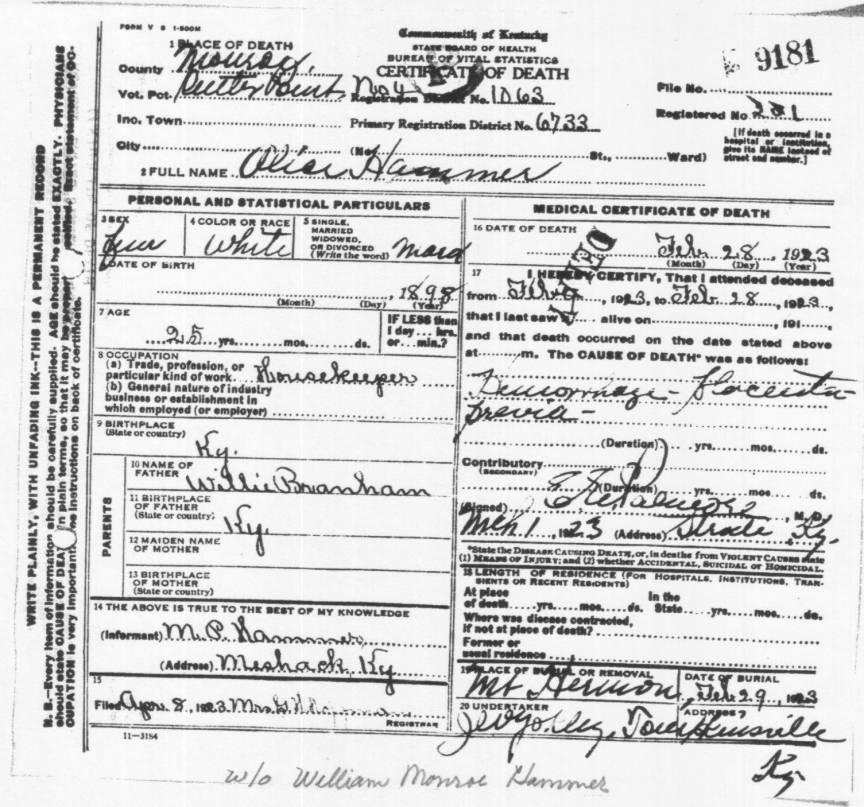 FORM V S 1-500M
Commonwealth of Kentucky
STATE BOARD OF HEALTH
BUREAU OF VITAL STATISTICS
CERTIFICATE OF DEATH
9181
1 PLACE OF DEATH
County Monroe,
Vot. Pct. Center Point No 4 Registration District No. 1063
File No.
Inc. Town Primary Registration District No. 6733
Registered No.
City (No St., Ward)
[If death occurred in a hospital or institution, give its NAME instead of street and number.]
2 FULL NAME Alice Hammer
PERSONAL AND STATISTICAL PARTICULARS
3 SEX Fem
4 COLOR OR RACE White
5 SINGLE, MARRIED WIDOWED, OR DIVORCED (Write the word) Mard
DATE OF BIRTH
, 1898
(Month) (Day) (Year)
7 AGE
25 yrs. mos. ds.
IF LESS than 1 day hrs. or min.?
8 OCCUPATION
(a) Trade, profession, or particular kind of work Housekeeper
(b) General nature of industry business or establishment in which employed (or employer)
9 BIRTHPLACE
(State or country) Ky.
PARENTS
10 NAME OF FATHER Willie Branham
11 BIRTHPLACE OF FATHER (State or country) Ky.
12 MAIDEN NAME OF MOTHER
13 BIRTHPLACE OF MOTHER (State or country)
14 THE ABOVE IS TRUE TO THE BEST OF MY KNOWLEDGE
(Informant) M. P. Hammer
(Address) Meshack Ky
15
Filed Apr. 8, 1923 Mrs
REGISTRAR
11-3184
MEDICAL CERTIFICATE OF DEATH
16 DATE OF DEATH
Feb 28, 1923
(Month) (Day) (Year)
17 I HEREBY CERTIFY, That I attended deceased
from Feb , 1923, to Feb 28, 1923,
that I last saw alive on , 191 ,
and that death occurred on the date stated above
at m. The CAUSE OF DEATH* was as follows:
Hemorrhage - Placenta
Previa -
(Duration) yrs. mos. ds.
Contributory
(SECONDARY)
(Duration) yrs. mos. ds.
(Signed) M. D.
Mch 1, 1923 (Address) Strode, Ky.
*State the DISEASE CAUSING DEATH, or, in deaths from VIOLENT CAUSES state
(1) MEANS OF INJURY; and (2) whether ACCIDENTAL, SUICIDAL or HOMICIDAL.
18 LENGTH OF RESIDENCE (FOR HOSPITALS, INSTITUTIONS, TRANSIENTS OR RECENT RESIDENTS)
At place of death yrs. mos. ds. In the State yrs. mos. ds.
Where was disease contracted, if not at place of death?
Former or usual residence
19 PLACE OF BURIAL OR REMOVAL
Mt Hermon
DATE OF BURIAL
Feb 29, 1923
20 UNDERTAKER
ADDRESS
Tompkinsville
Ky
w/o William Monroe Hammer
WRITE PLAINLY, WITH UNFADING INK--THIS IS A PERMANENT RECORD
N. B.--Every item of information should be carefully supplied. AGE should be stated EXACTLY. PHYSICIANS
should state CAUSE OF DEATH in plain terms, so that it may be properly
OCCUPATION is very important. instructions on back of certificate.